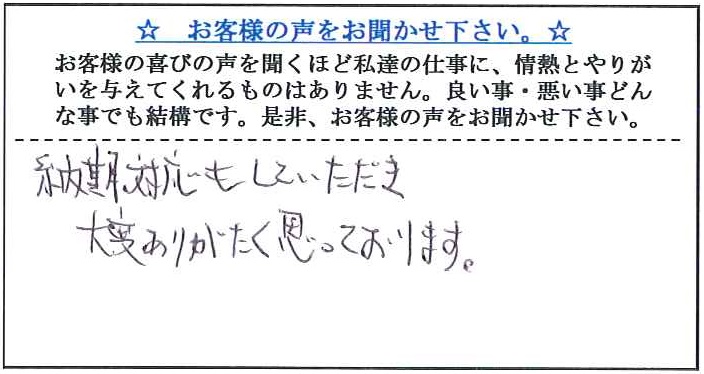 ☆　お客様の声をお聞かせ下さい。☆
お客様の喜びの声を聞くほど私達の仕事に、情熱とやりが
いを与えてくれるものはありません。良い事・悪い事どん
な事でも結構です。是非、お客様の声をお聞かせ下さい。
納期対応もしていただき
大変ありがたく思っております。